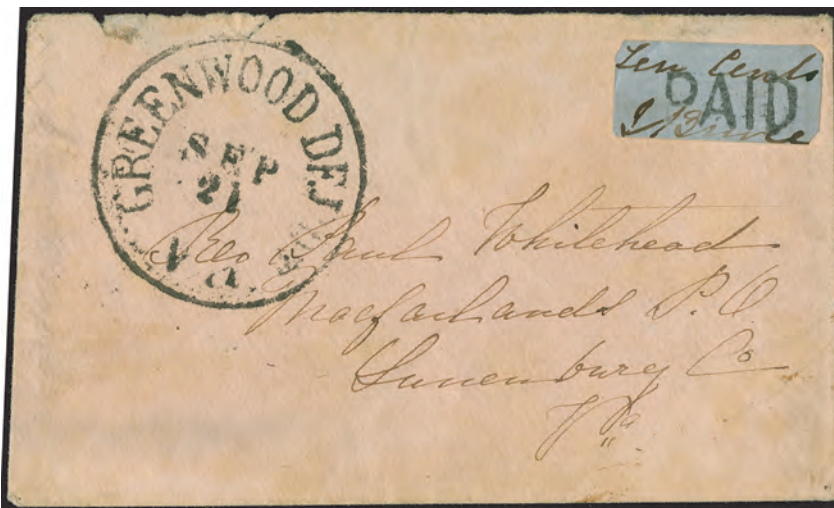 GREENWOOD DEP
SEP
21
VA.
Ten Cents
PAID
J. Bruce
Rev Paul Whitehead
Macfarlands P. O
Lunenburg Co
Va